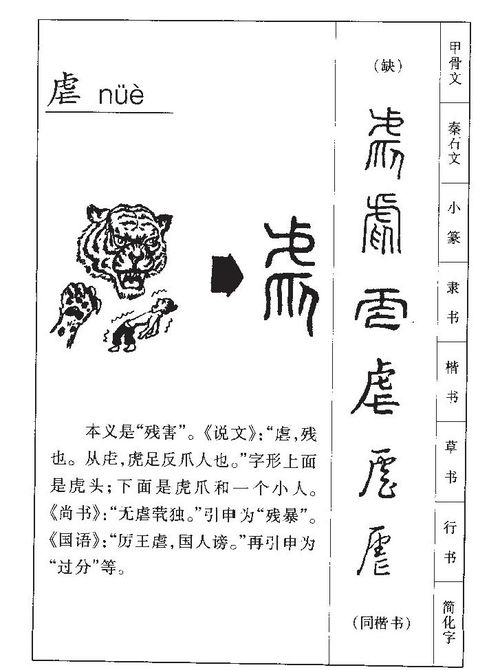 虐 nüè
本义是“残害”。《说文》:“虐,残
也。从虍,虎足反爪人也。”字形上面
是虎头;下面是虎爪和一个小人。
《尚书》:“无虐茕独。”引申为“残暴”。
《国语》:“厉王虐,国人谤。”再引申为
“过分”等。
(缺)
虐
虐
虐
虐
虐
虐
(同楷书)
甲骨文
秦石文
小篆
隶书
楷书
草书
行书
简化字